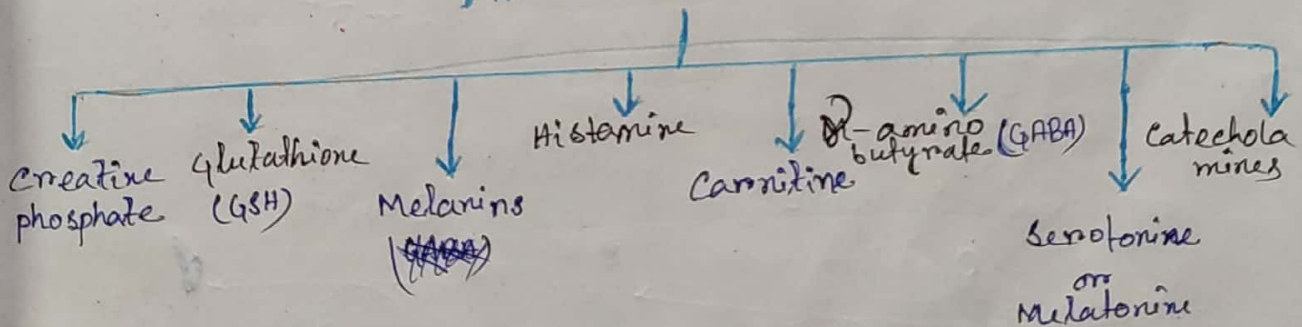 Creatine
phosphate
Glutathione
(GSH)
Melanins
Histamine
Carnitine
γ-amino
butyrate (GABA)
Serotonine
or
Melatonine
Catechola
mines